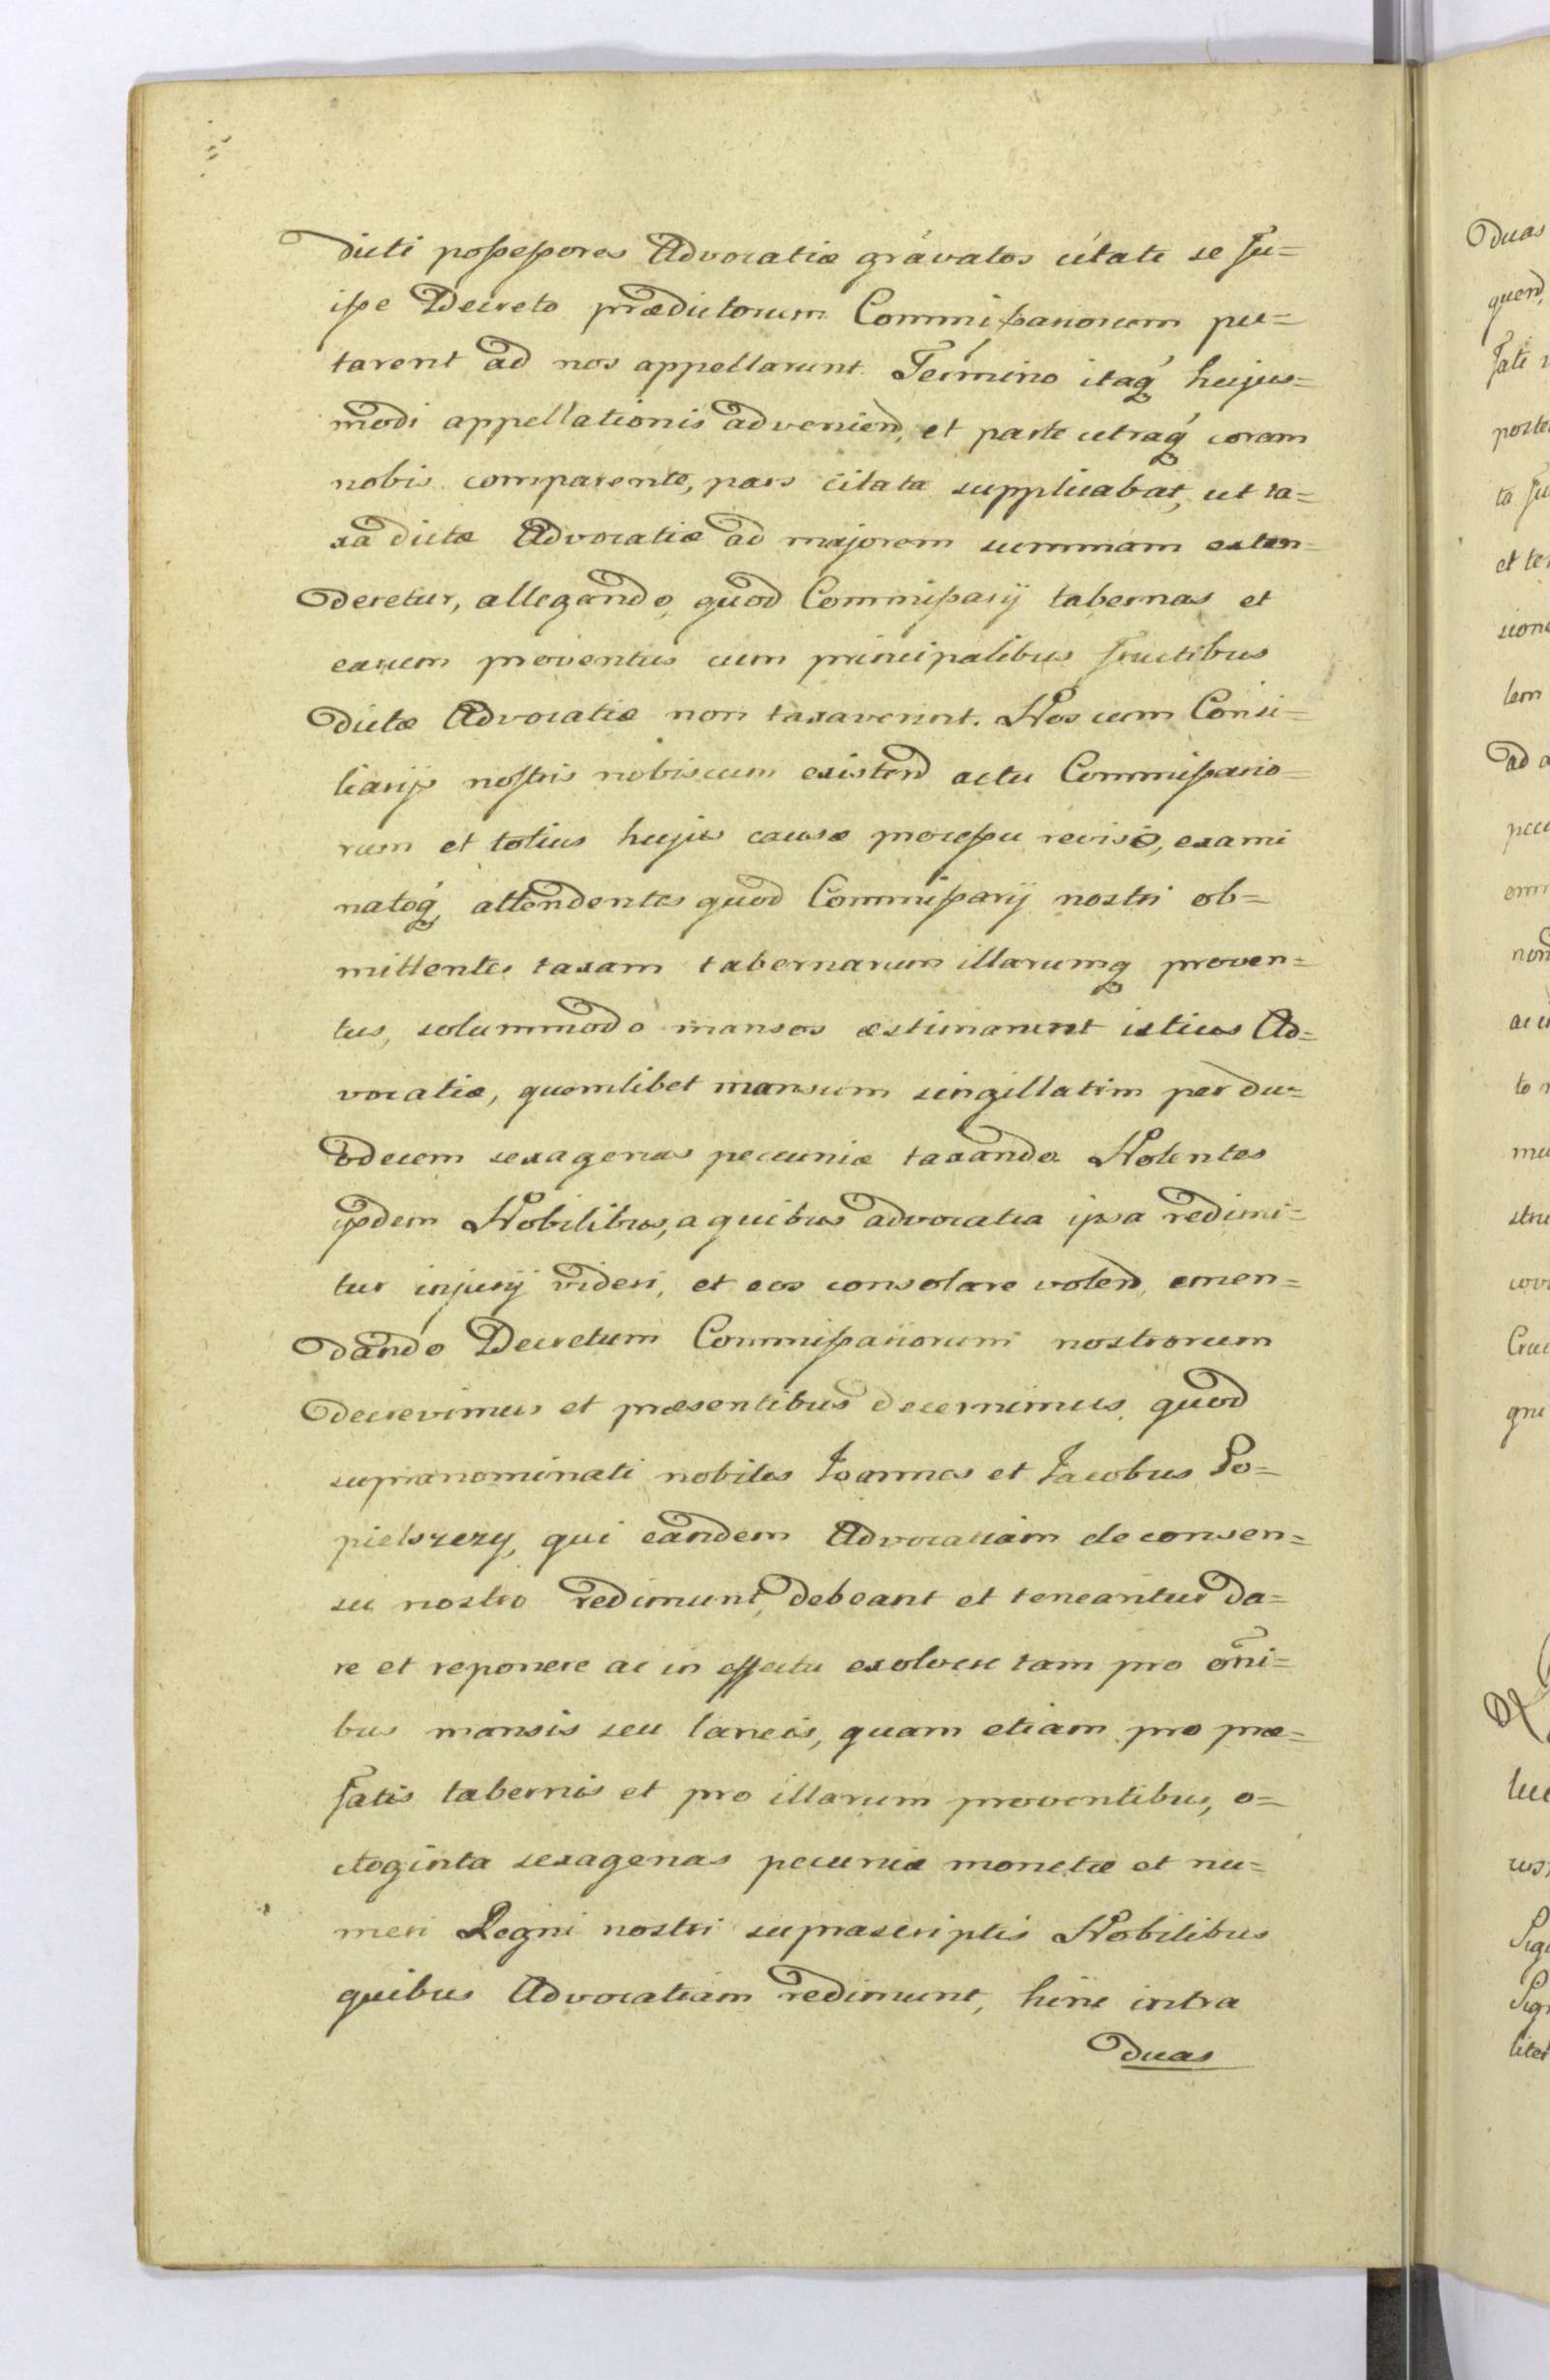 dicti possessores Advocatiæ gravatos citati se fu=
isse Decreto prædictorum Commissariorum pu=
tarent ad nos appellarunt. Termino itaq́ hujus=
modi appellationis adveniend, et parte utraq́ coram
nobis comparente, pars citata supplicabat, ut ta=
xa dictæ Advocatiæ ad majorem summam exten=
deretur, allegando, quod Commissarij tabernas et
earum proventus cum principalibus fructibus
dictæ Advocatiæ non taxaverint. Nos cum Consi=
liarijs nostris nobiscum existend actu Commissario=
rum et totius hujus causæ processu reviso, exami
natoq́ attendentes quod Commissarij nostri ob=
mittentes taxam tabernarum illarumq proven=
tus, solummodo mansos æstimarunt istius Ad=
vocatiæ, quemlibet mansum singillatim per du=
odecem sexagenas pecuniæ taxando. Nolentes
ijsdem Nobilibus, a quibus advocatia ipsa redimi=
tur injurij videri, et eos consolare volend, emen=
dando Decretum Commissariorum nostrorum
decrevimus et præsentibus decernimus, quod
supranominati nobiles Joannes et Jacobus Po=
pielszezy, qui eandem Advocatiam de consen=
su nostro redimunt, debeant et teneantur da=
re et reponere ac in effectu exolvere tam pro oñi=
bus mansis seu laneis, quam etiam pro præ=
fatis tabernis et pro illarum proventibus, o=
ctoginta sexagenas pecuniæ monetæ et nu=
meri Regni nostri suprascriptis Nobilibus
quibus Advocatiam redimunt, hinc intra
duas
Duas
quend,
fati
poste
ta fu
et te
sione
lem
ad a
pecu
omn
non
ac
to
mu
stru
Cruc
gni
Sig
Sig
liter